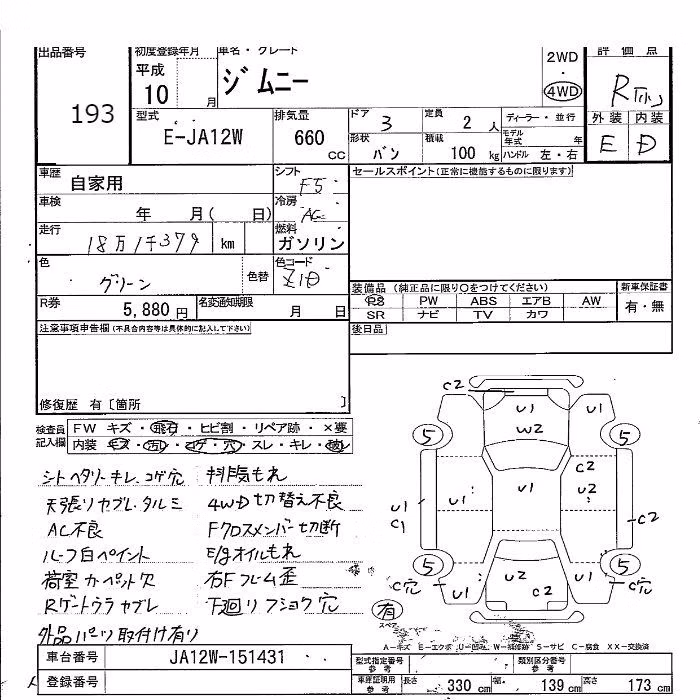 出品番号 初度登録年月 車名・グレード 2WD・4WD 評価点
193 平成 10 月 ジムニー R
型式 排気量 ドア 3 定員 2 人 ディーラー・並行 外装 内装
E-JA12W 660 cc 形状 バン 積載 100 kg モデル年式 年 ハンドル 左・右 E D
車歴 自家用 シフト F5 セールスポイント(正常に機能するものに限ります)
車検 年 月( 日) 冷房 AC
走行 18万1千379 km 燃料 ガソリン
色 グリーン 色替 色コード Z1D 装備品 (純正品に限り○をつけてください) 新車保証書
PS PW ABS エアB AW 有・無
R券 5,880円 名変通知期限 月 日 SR ナビ TV カワ
注意事項申告欄(不具合内容等は具体的に記入して下さい) 後日品
修復歴 有〔箇所 〕
検査員記入欄 FW キズ・飛石・ヒビ割・リペア跡・×要
内装 キズ・汚レ・コゲ・穴・スレ・キレ・
シートヘタリ・キレ、コゲ穴 排気もれ
天張りヤブレ・タルミ 4WD切替え不良
AC不良 Fクロスメンバー切断
ルーフ白ペイント E/gオイルもれ
荷室カーペット欠 右Fフレーム歪
Rゲートウラヤブレ 下廻りフショク穴
外品パーツ取付け有り
C2 U1 W2 U1
5 5
C2
U1 C1 U1 U1 U2 C2
5 5
C穴 U2 U2 C2 C穴
有 スペア
A-キズ E-エクボ U-凹ミ W-補修跡 S-サビ C-腐食 XX-交換済
車台番号 JA12W-151431 型式指定番号 参考 類別区分番号 参考
登録番号 車庫証明用 参考 長さ 330 cm 幅 139 cm 高さ 173 cm